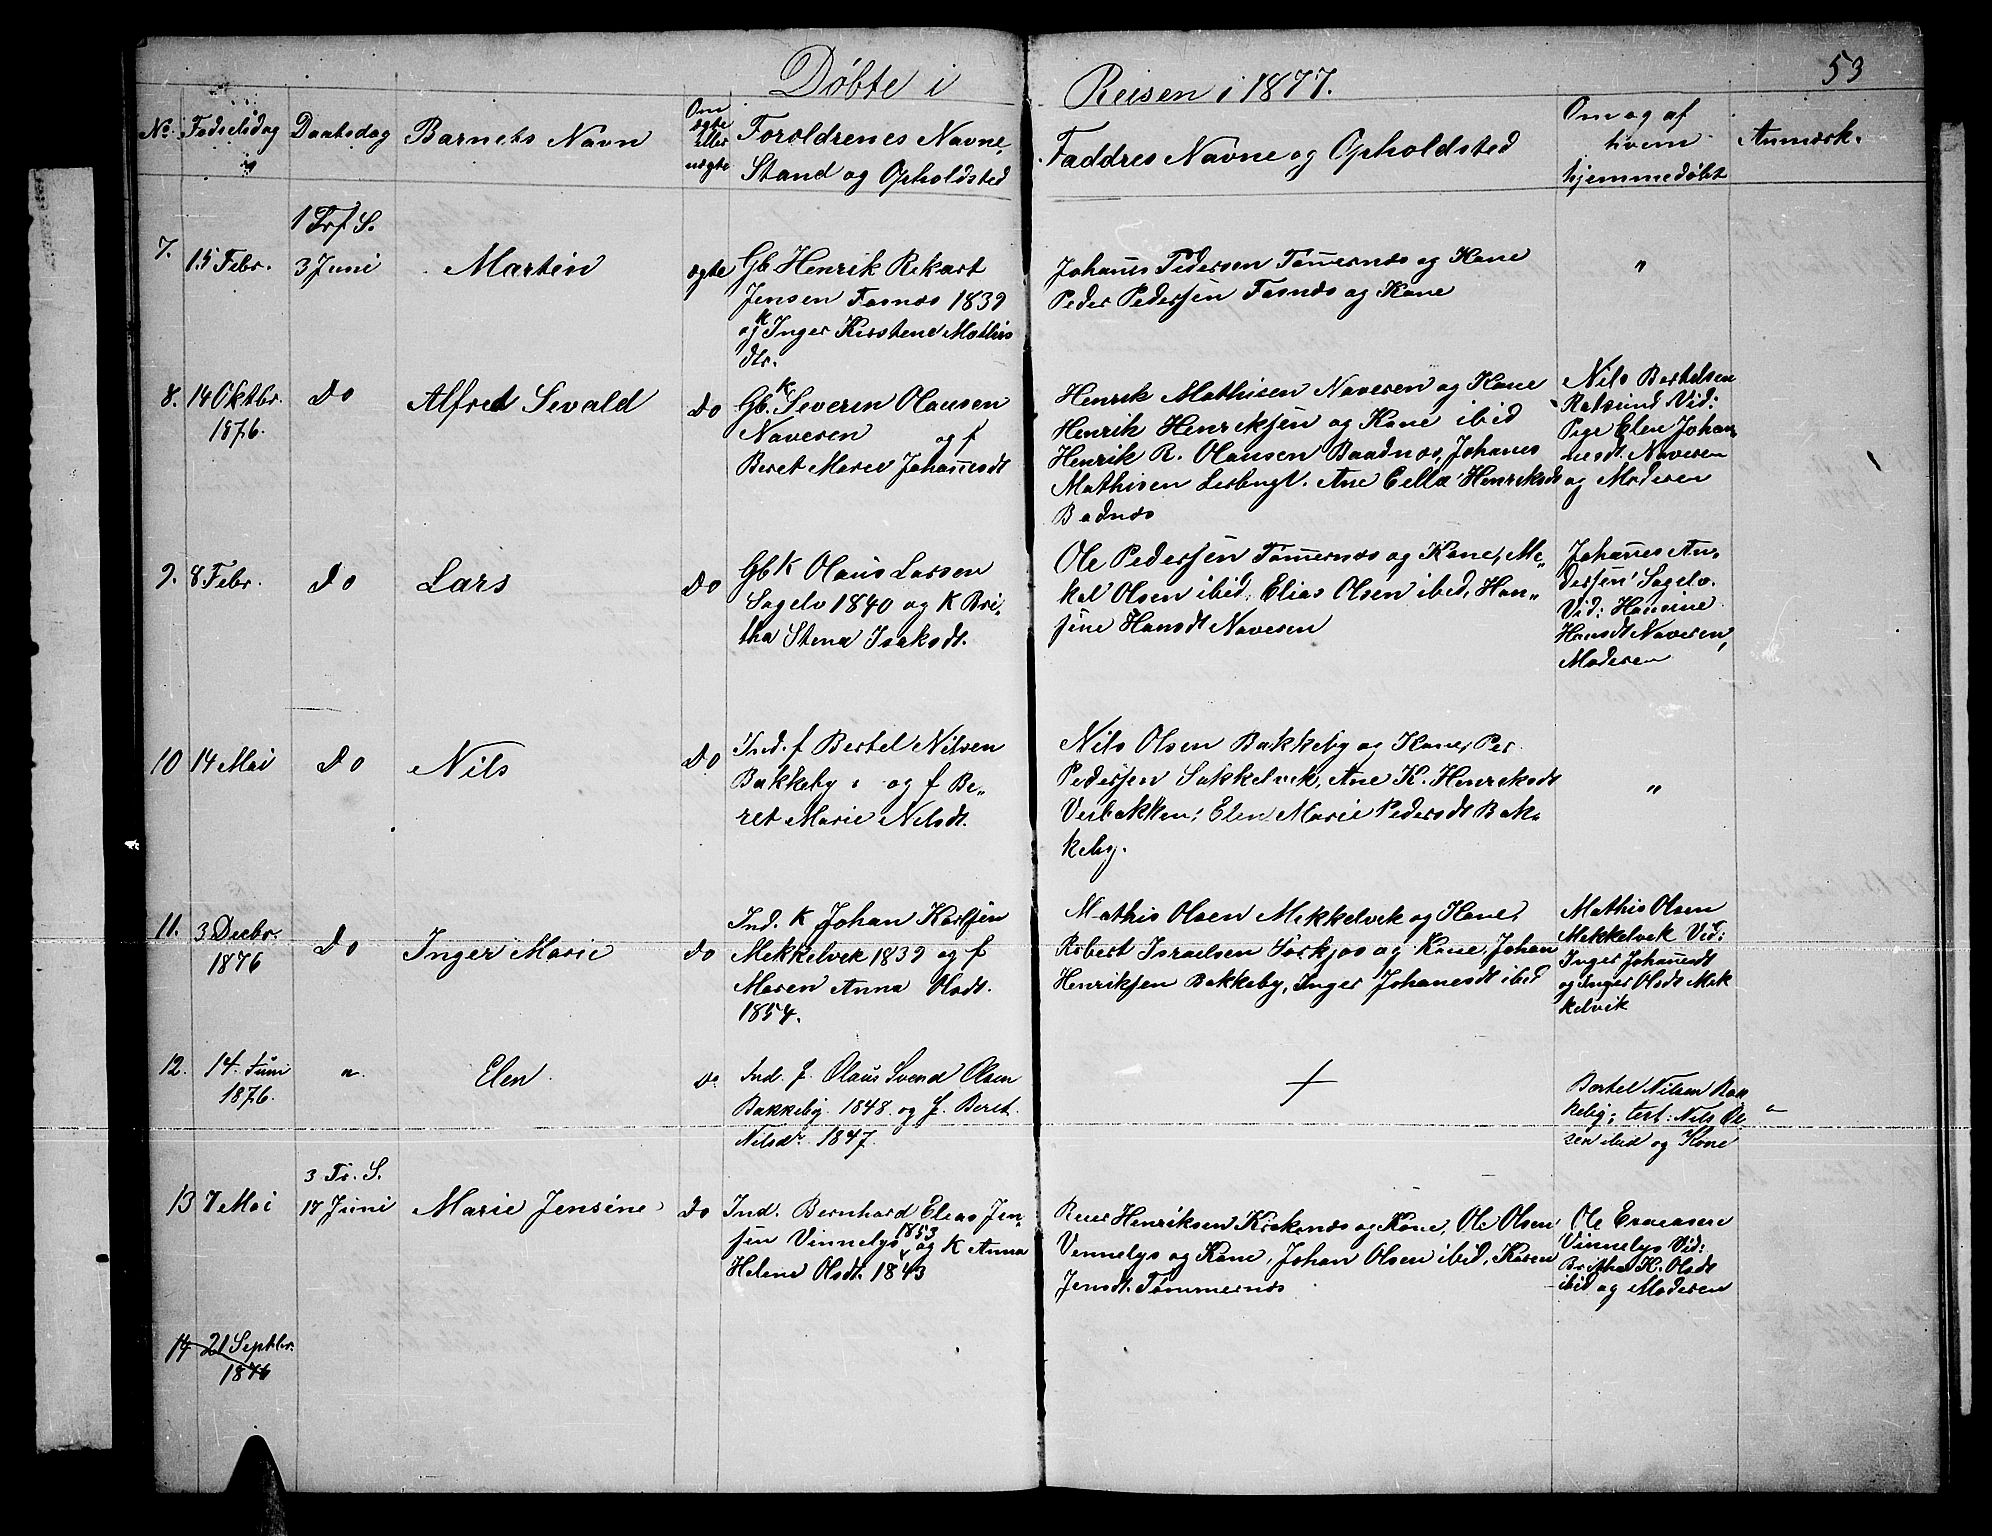 Døbte i Reisen i 1877.
53
No. Fødselsdag Daabsdag Barnets Navn Om ægte eller uægte Foreldrenes Navne, Stand og Opholdsted Faddres Navne og Opholdsted Om og af hvem hjemmedøbt Anmærk.
1 Trf S.
7. 15 Febr. 3 Juni Martin ægte
Gb. Henrik Rikart
Jensen Fosnæs 1839
og K Inger Kirstene Mathis
dtr.
Johanes Pedersen Tømernæs og Kone
Peder Pedersen Fosnæs og Kone
"
8. 14 Oktbr. 1876. Do Alfred Sevald Do
Gb. K Severin Olausen
Naveren og f
Beret Marie Johanesdt
Henrik Mathisen Naveren og Kone
Henrik Henriksen og Kone ibid
Henrik R. Olausen Baadnæs, Johanes
Mathisen Lerbugt. Ane Cella Henriksdt
Badnæs
Nils Bertelsen
Rotsund Vid:
Pige Elen Johan
nesdt. Naveren
og Moderen
9. 8 Febr. Do Lars Do
Gb K Olaus Larsen
Sagelv 1840 og K Bri-
tha Stena Isaksdt.
Ole Pedersen Tømernæs og Kone, Mi-
kal Olsen ibid, Elias Olsen ibid, Han-
sine Hansdt Naveren
Johanes An-
dersen Sagelv.
Vid: Hansine
Hansdt Naveren,
Moderen
10 14 Mai Do Nils Do
Ind. f Bertel Nilsen
Bakkeby og f Be-
ret Marie Nilsdt.
Nils Olsen Bakkeby og Kone, Per
Pedersen Sakkelvik, Ane K. Henriksdt
Veibakken, Elen Marie Pedersdt Bak-
keby.
"
11. 3 Decbr. 1876 Do Inger Marie Do
Ind. K Johan Karlsen
Mekkelvik 1839 og f
Maren Anna Olsdt.
1854.
Mathis Olsen Mikkelvik og Kone,
Robert Israelsen Sørkjos og Kone, Johan
Henriksen Bakkeby, Inger Johanesdt ibid
Mathis Olsen
Mekkelvik Vid:
Inger Johanesdt
og Inger Olsdt Mek
kelvik
12. 14. Juni 1876. " Elen Do
Ind. f. Olaus Svend Olsen
Bakkeby 1848. og f. Beret
Nilsdr. 1847.
+
Bertel Nilsen Bak
kebg; test: Nils Ol-
sen ibid og Kone
3 Tr. S.
13 7 Mai 17 Juni Marie Jensine Do
Ind. Bernhard Elias Jen-
sen Vinnelys 1853 og K Anna
Helene Olsdt. 1843
Reier Henriksen Krakenæs og Kone, Ole Olsen
Vinnelys og Kone, Johan Olsen ibid, Karen
Jensdt. Tømmernæs
Ole
Vinnelys Vid:
Britha K. Olsdt
ibid og Moderen
14 21 Septbr. 1876